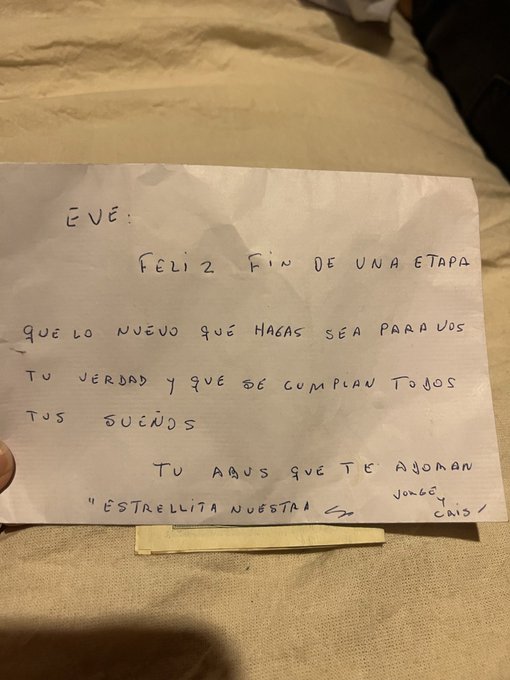 EVE:
FELIZ FIN DE UNA ETAPA
QUE LO NUEVO QUE HAGAS SEA PARA VOS
TU VERDAD Y QUE SE CUMPLAN TODOS
TUS SUEÑOS
TU ABUS QUE TE ADORAN
"ESTRELLITA NUESTRA
JORGE Y
CRIS